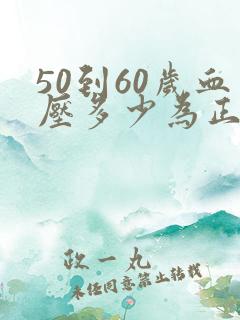 50到60歲血
壓多少為正
政一丸
未经同意禁止转载